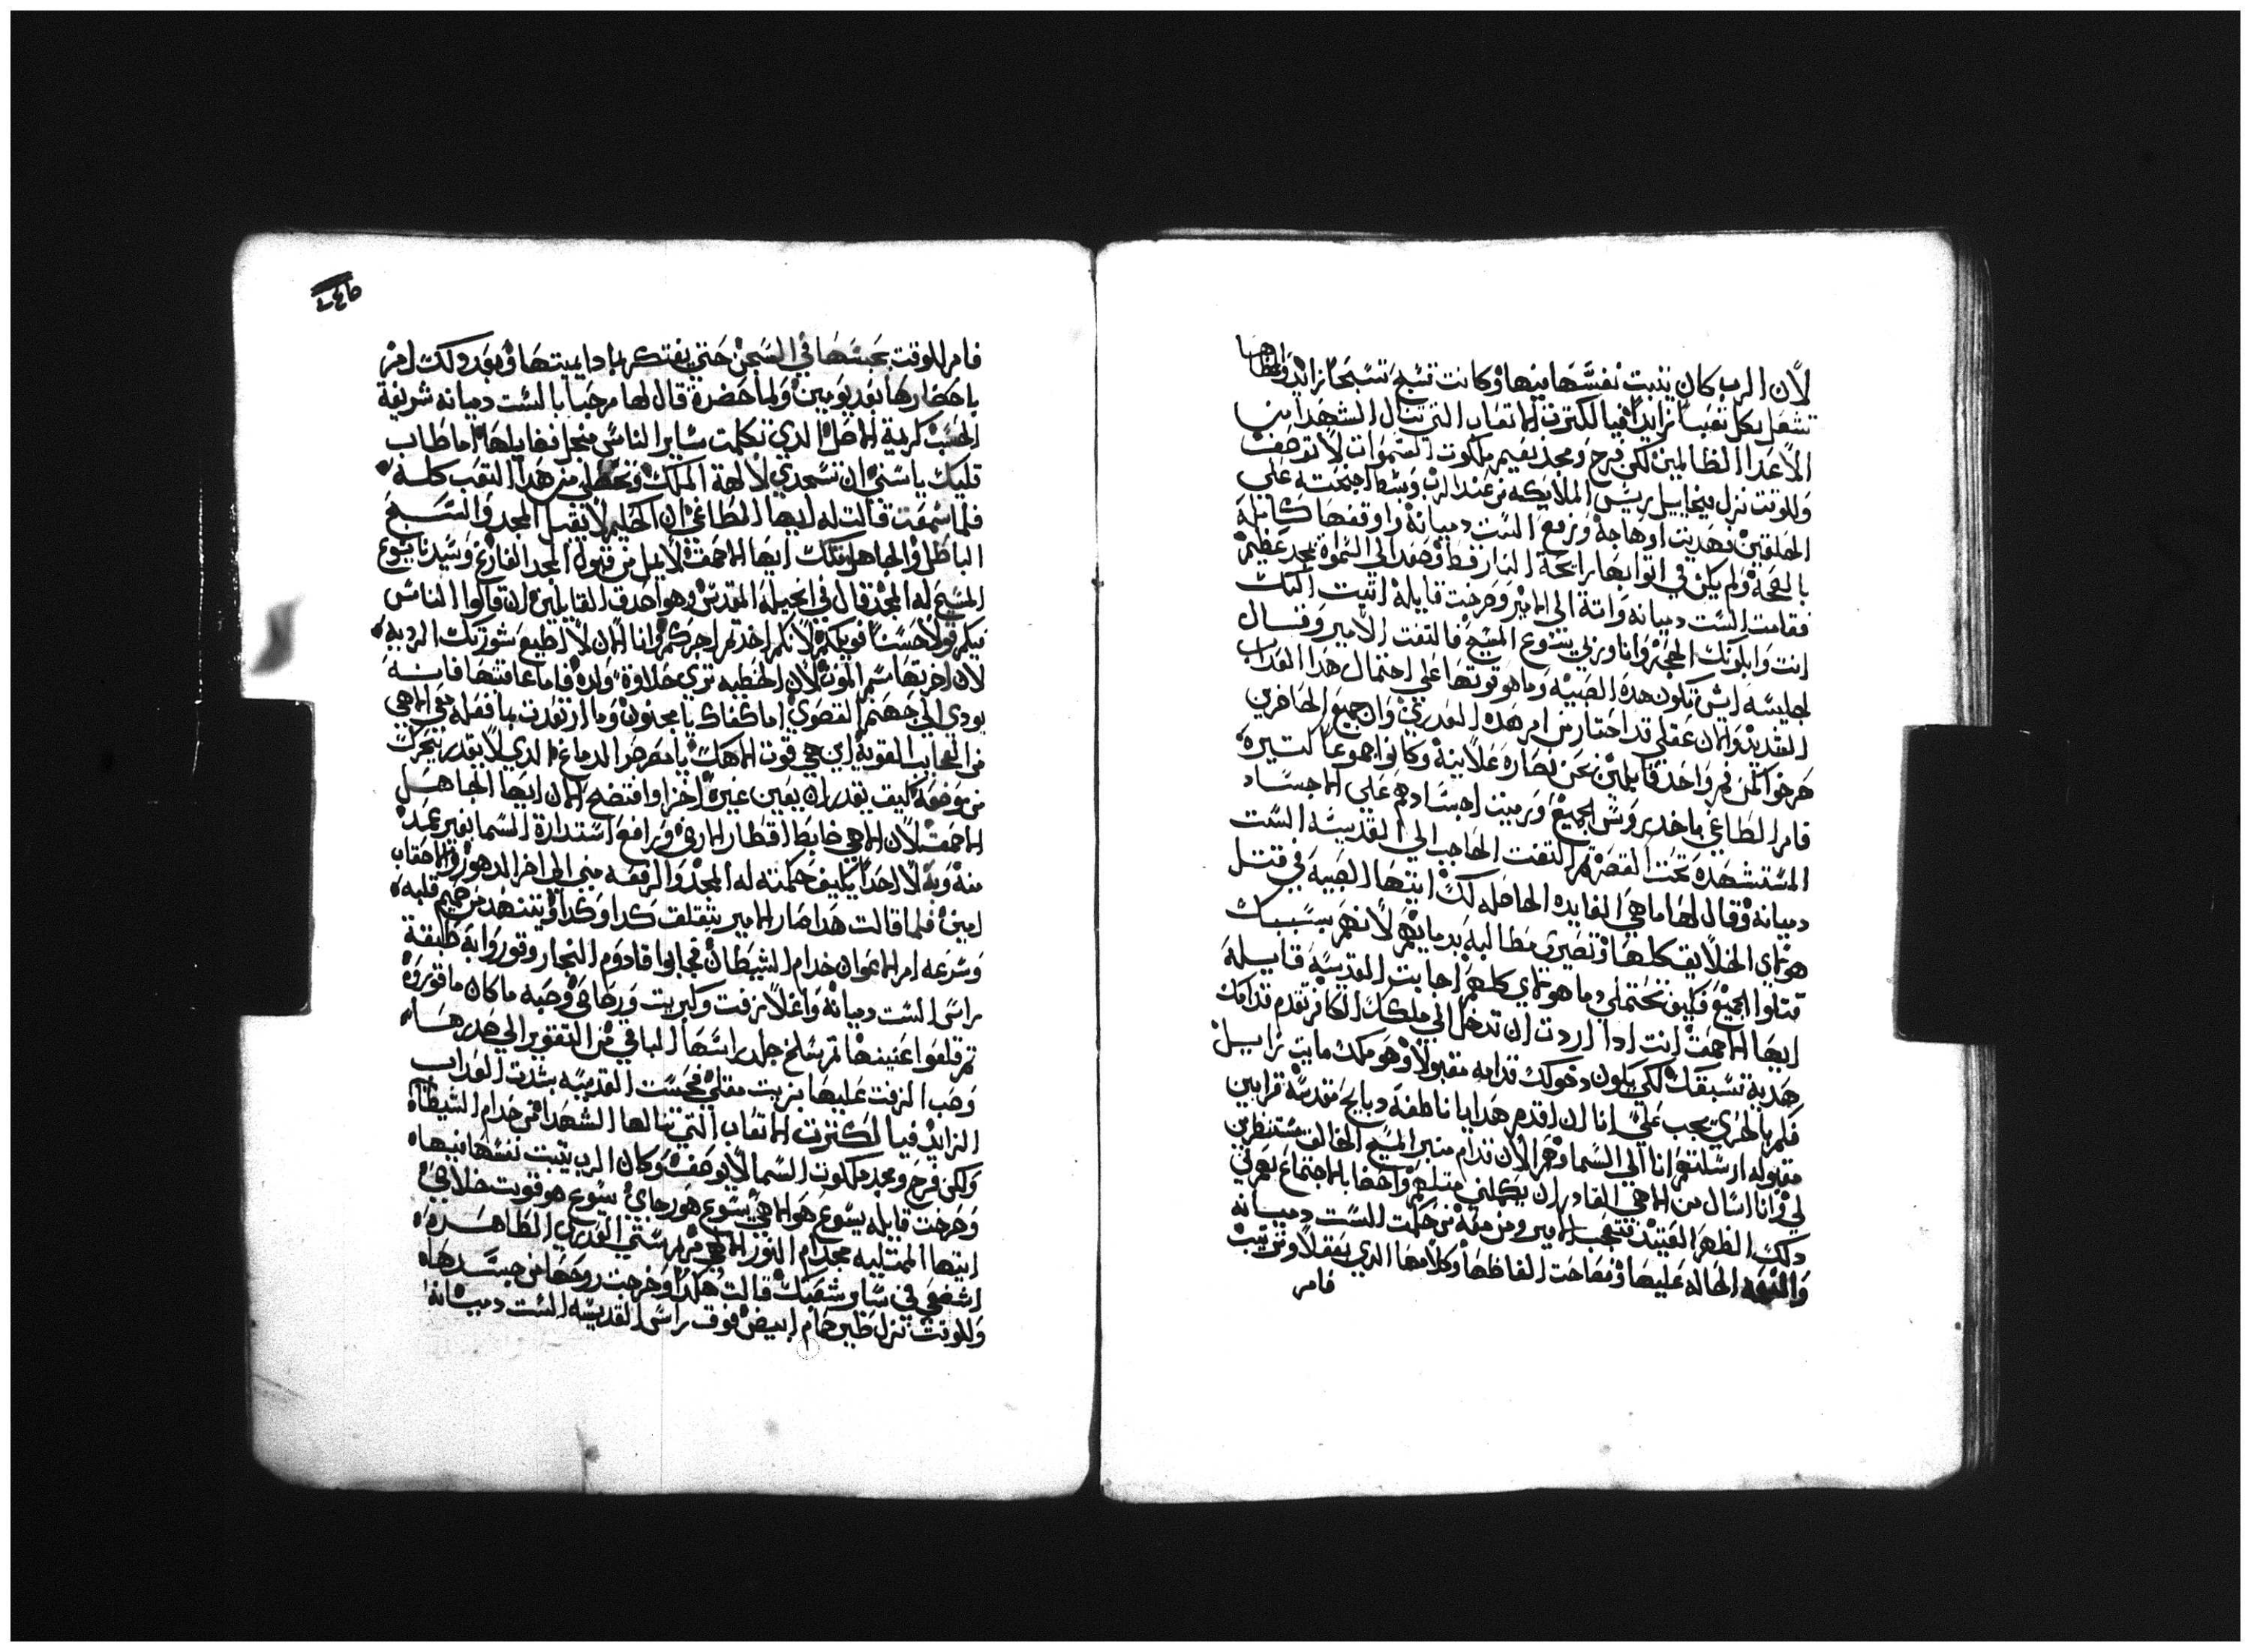 لان الرب كان يتبت نفسها فيها وكانت تسبح تسبحا زايد والطاها
تشعل بكل تعب زايدا فيا لكترت الاتعاب التي تنال الشهدا من
الاعدا الظالمين لكن فرح ومجد نعيم ملكوت السموات لا توصف
وللوقت نزل ميخاييل رييس الملايكه من عند الرب وبسط اجنحته علي
الحلقين فهديت اوهاجه ورفع الست دميانة واوقفها كاملة
بالصحة ولم يكن في اتوابها رايحة النار فط وصعد الي السماء بمجد عظيم
فقامت الست دميانه واتة الي الامير وصرخت قايلة اتيت اليك
انت وابلونك الحجر وانا وربي يسوع المسيح فالتفت الامير وقال
لجليسه ايش تكون هذه الصبيه وما هو قوتها علي احتمال هدا العداب
الشديد والان عقلي قد احتار من امر هده العدري وان جميع الحاضرين
صرخوا كلمن فم واحد قايلين نحن نصاره علانية وكانوا جموعا كتيرة
فامر الطاغي باخد روس الجميع ورميت اجسادهم علي الاجساد
المستشهدة تحت القصر ثم التفت الحاجب الي القديسه الست
دميانه وقال لها ما هي الفايده الحاصله لك ايتها الصبية في قتل
هوتاي الخلايق كلها وتصيري مطالبة بدمايهم لانهم بسببك
قتلوا الجميع فكيف تحتملي دما هوتاي كلهم اجابت القديسه قايلة
ايها الاحمق انت ادا اردت ان تدخل الي ملكك الكافر تقدم قدامك
هدية تسبقك لكي يكون دخولك قدامه مقبولا وهو ملك مايت زايل
فلم بالحري يجب علي انا ان اقدم هدايا ناطقة دبايح مقدسة قرابين
مقبوله ارسلتهم انا الي السما وهم الان قدام منبر المسيح الخالق مستنظرين
لي وانا اسال من الاهي القادر ان يكملني متلهم واحضا بالاجتماع بهم في
دلك الطهر العتيد فتعجب الامير ومن معه من جلت الست دميانه
والنعمه الحاله عليها وفصاحت الفاظها وكلامها الدي بعقل وترتيب
فامر
فامر للوقت بحبسها في السجن حتي يفتكر بادا يميتها وبعد دلك امر
باحضارها بعد يومين ولما حضرة قال لها مرحبا بالست دميانه شريفة
الحسب كريمة الاصل الدي تكلمت ساير الناس منجل فضايلها اما طاب
قلبك ياستي ان تسجدي لالهة الملك وتخلصي من هدا التعب كله
فلما سمعت قالت له ايها الطاغي ان الحليم لا يقبل المجد والتسبح
الباطل والجاهل متلك ايها الاحمق لا يمل من قبول المجد الفارغ وسيدنا يسوع
المسيح له المجد قال في انجيله المقدس وهو اصدق القايلين ان قالوا الناس
فيكم قولا حسنا فويلكم لانكم اخدتم اجركم وانا الان لا اطيع مشورتك الرديه
لان اخرتها سم الموت لان الخطيه تري حلاوة ولده فاما عاقبتها فانه
يودي الي جهنم القصوي اما كفاك يا مجنون وما ارتعدت ما فعله معي الاهي
من العجايب القوية اين هي قوت الاهك يا مضرضر الدماغ الدي لا يقدر يتحرك
من موضعه كيف يقدر ان يعين غيره اخزا وافتضح الان ايها الجاهل
الاحمق لان الاهي ضابط اقطار الارض ورافع استدارة السما بغير عمد
منه وبه لا احدا يكيف حكمته له المجد والرفعه مني الي اخر الدهور والاحقاب
امين فلما قالت هدا صار الامير يتقلق كدا وكدا ويتنهد من صميم قلبه
وسرعه امر الاعوان خدام الشيطان فجابوا قادوم النجار وقوروا به طبقة
راس الست دميانة واغلا زفت وكبريت ورصاص وصبه ماكان ما قوروه
ثم قلعوا عنيها ثم سلخ جلد راسها الباقي من التقوير الي صدرها
وصب الزفت عليها بزيت مغلي فحست القديسه بشدت العداب
الزايد فيا لكترت الاتعاب التي تنالها الشهدا من خدام الشيطان
ولكن فرح ومجد ملكوت السما لا يوصف وكان الرب يتبت نفسها فيها
وصرخت قايله يسوع هو الاهي يسوع هو رجاي يسوع هو قوت خلاصي
ايتها الممتليه مجدا ام النور الاهي مريم ستي العدري الطاهره
اشفعي في ساير شعبك قالت هكدا وخرجت روحها من جسدها
وللوقت نزل طير حمام ابيض فوق راس القديسه الست دميانه